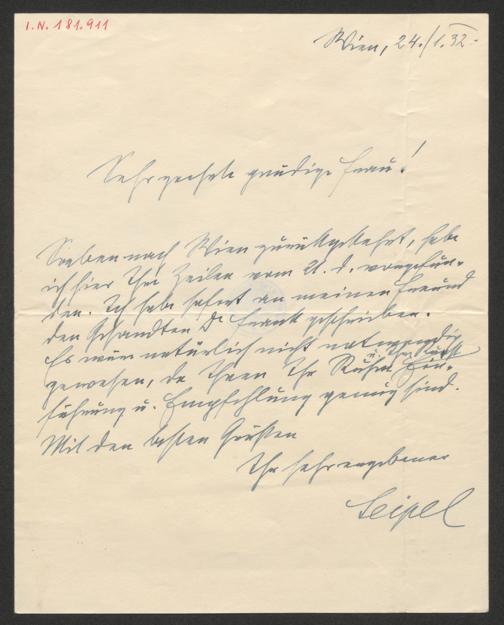 I.N. 181.911
Wien, 24./1.32.
Sehr geehrte gnädige Frau!
Soeben nach Wien zurückgekehrt, habe
ich hier Ihre Zeilen vom 21. d. vorgefun-
den. Ich habe sofort an meinen Freund
den Gesandten Dr Frank geschrieben.
Es wäre natürlich nicht notwendig
gewesen, da Ihnen Ihr Ruhm u. Ihre Kunst Ein-
führung u. Empfehlung genug sind.
Mit den besten Grüßen
Ihr sehr ergebener
Seipel